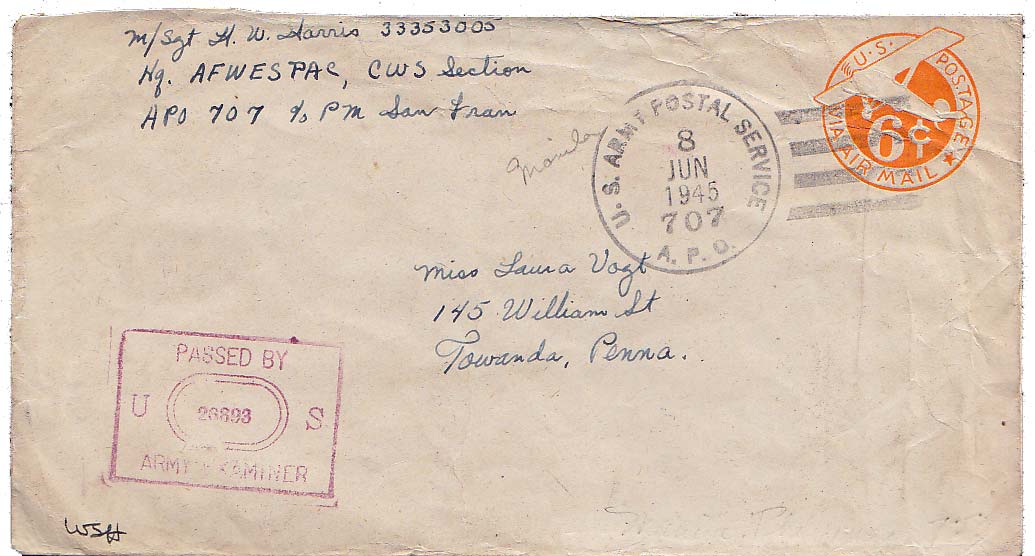 M/Sgt H. W. Harris 33353005
Hq. AFWESPAC, CWS Section
APO 707 c/o PM San Fran
Manila
U. S. ARMY POSTAL SERVICE
8
JUN
1945
707
A. P. O.
U.S. POSTAGE
6¢
VIA AIR MAIL
Miss Laura Vogt
145 William St
Towanda, Penna.
PASSED BY
U S
ARMY EXAMINER
WSH